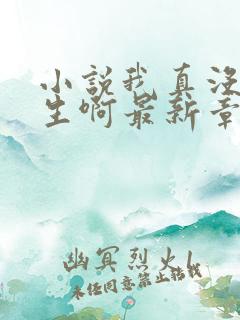 小说我真没
生啊最新章
幽冥烈火L
未经同意禁止转载